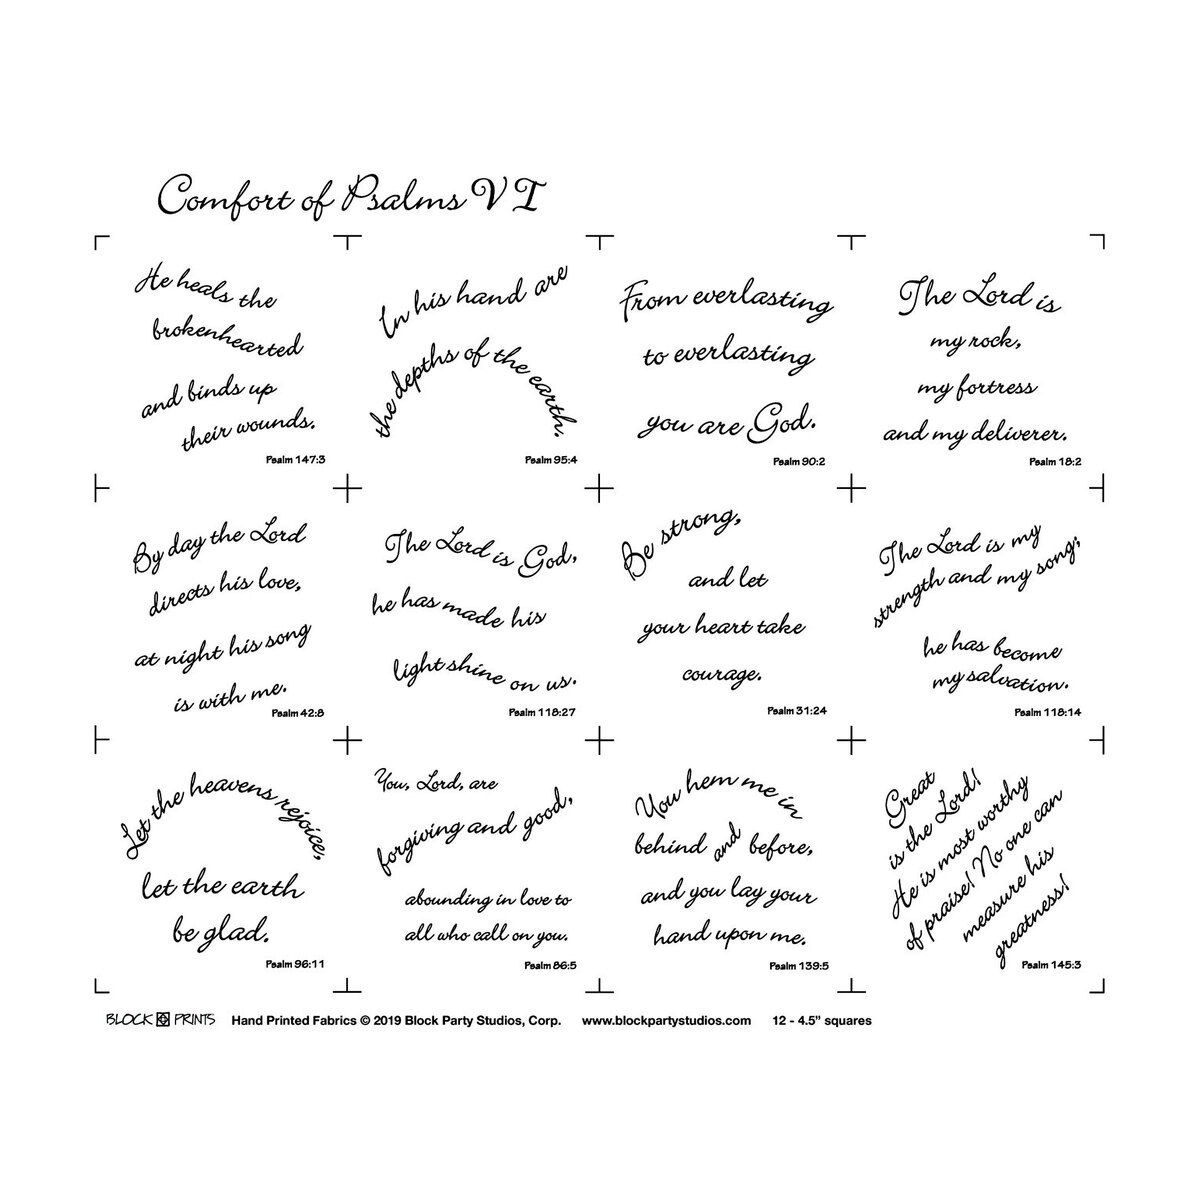 Comfort of Psalms VI
He heals the
brokenhearted
and binds up
their wounds.
Psalm 147:3
In his hand are
the depths of the earth.
Psalm 95:4
From everlasting
to everlasting
you are God.
Psalm 90:2
The Lord is
my rock,
my fortress
and my deliverer.
Psalm 18:2
By day the Lord
directs his love,
at night his song
is with me.
Psalm 42:8
The Lord is God,
he has made his
light shine on us.
Psalm 118:27
Be strong,
and let
your heart take
courage.
Psalm 31:24
The Lord is my
strength and my song;
he has become
my salvation.
Psalm 118:14
Let the heavens rejoice,
let the earth
be glad.
Psalm 96:11
You, Lord, are
forgiving and good,
abounding in love to
all who call on you.
Psalm 86:5
You hem me in
behind and before,
and you lay your
hand upon me.
Psalm 139:5
Great
is the Lord!
He is most worthy
of praise! No one can
measure his
greatness!
Psalm 145:3
BLOCK PRINTS Hand Printed Fabrics © 2019 Block Party Studios, Corp. www.blockpartystudios.com 12 - 4.5” squares